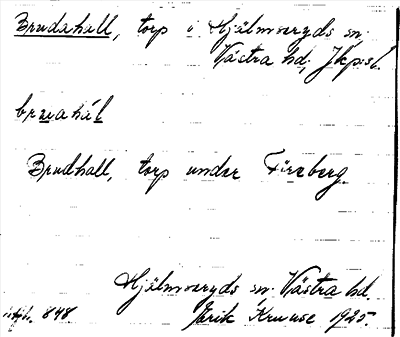 Brudahall, torp i Hjälmseryds sn.
Västra hd, Jkp:sl.
bruahál
Brudhall, torp under Föreberg.
Hjälmseryds sn. Västra hd.
848 Jörik Kruuse 1925.